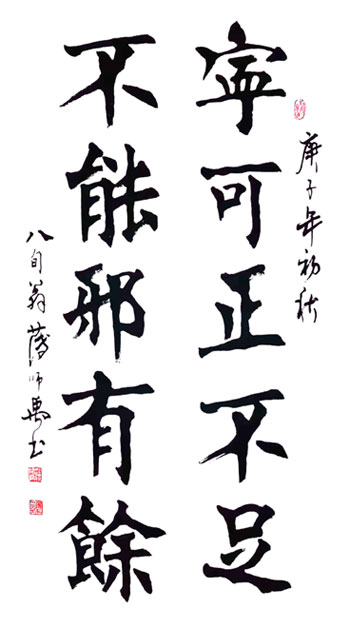 庚子年初秋
寧可正不足
不能邪有餘
八旬翁薄師禹书